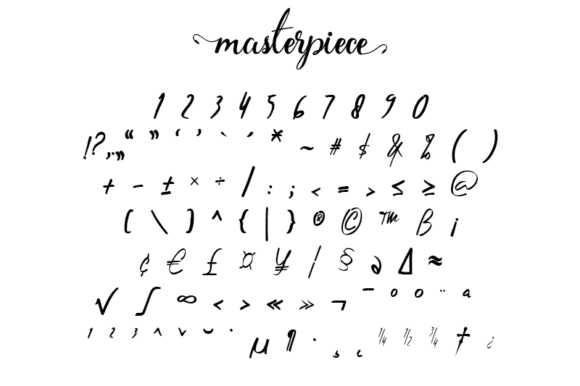 masterpiece
1 2 3 4 5 6 7 8 9 0
!?.,„ “ ” ‘ ’ ` ´ * ~ # $ & % ( )
+ - ± × ÷ / : ; < = > ≤ ≥ @
[ \ ] ^ { | } ® © ™ ß ¡
¢ € £ ¤ ¥ / § ∂ ∆ ≈
√ ∫ ∞ ‹ › « » ¬ ¯ º ° ¨ ª
¹ ² ³ ˆ ˇ ˘ ˙ µ ¶ · ¼ ½ ¾ † ¿